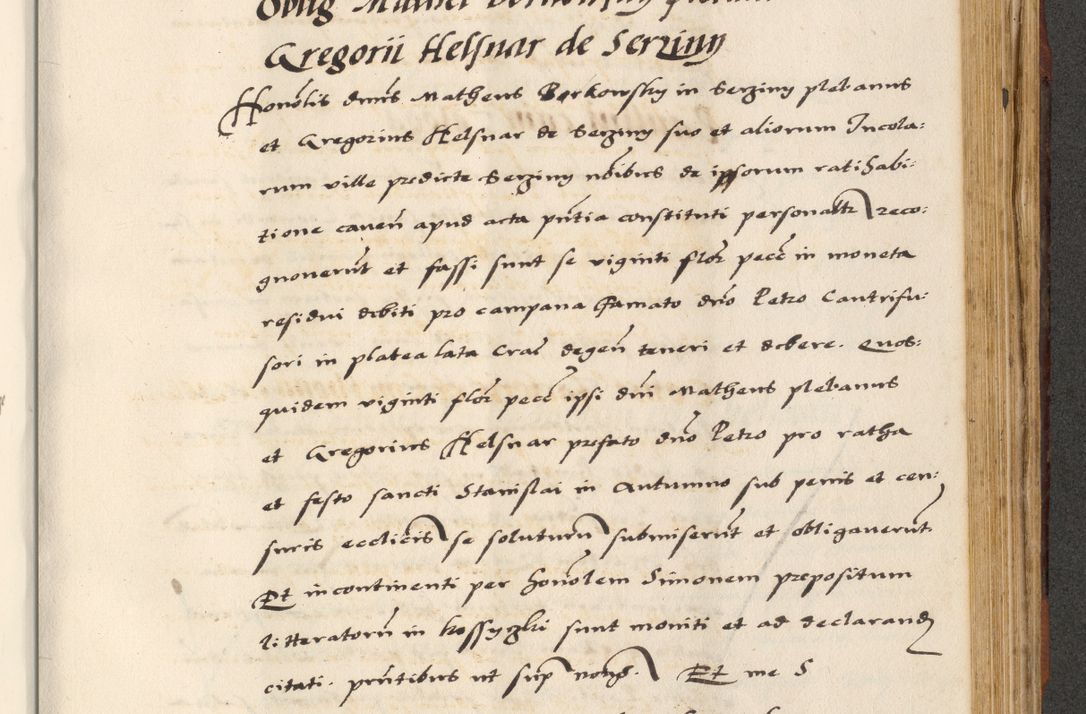 Oblig Mathei Borkowsky plebani
Gregorii Helsnar de Serziny
Honolis dnus Matheus Borkowsky in Serziny plebanus
et Gregorius Helsnar de Serziny suo et aliorum Incola:
rum ville predicte Serziny nobibus de ipsorum ratihabi:
tione caven apud acta pntia constituti personaltr reco:
gnoverunt et fassi sunt se viginti flor pecc in moneta
residui debiti pro campana famato dno Petro Cantrifu:
sori in platea lata Crac degen teneri et debere. Quos:
quidem viginti flor pecc ipsi dni Matheus plebanus
et Gregorius Helsnar prefato dno Petro pro ratha
et festo sancti Stanislai in Autumno sub penis et cen:
suris ecclicis se soluturu submiserut et obligaverut.
Et incontinenti per honolem Simonem prepositum
litteratoru in kossyczki sunt moniti et ad declarand
citati. pntibus ut sup notis. Et me S